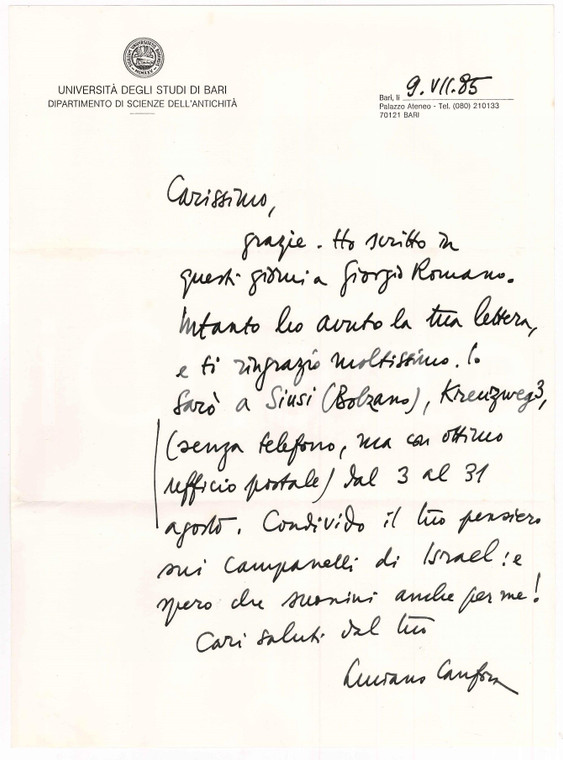 UNIVERSITÀ DEGLI STUDI DI BARI
DIPARTIMENTO DI SCIENZE DELL'ANTICHITÀ
Bari, li 9.VII.85
Palazzo Ateneo - Tel. (080) 210133
70121 BARI
Carissimo,
grazie. Ho scritto in
questi giorni a Giorgio Romano.
Intanto ho avuto la tua lettera,
e ti ringrazio moltissimo. Io
sarò a Siusi (Bolzano), Kreuzweg 3,
(senza telefono, ma con ottimo
ufficio postale) dal 3 al 31
agosto. Condivido il tuo pensiero
sui Campanelli di Israel: e
spero che suonini anche per me!
Cari saluti dal tuo
Luciano Canfora